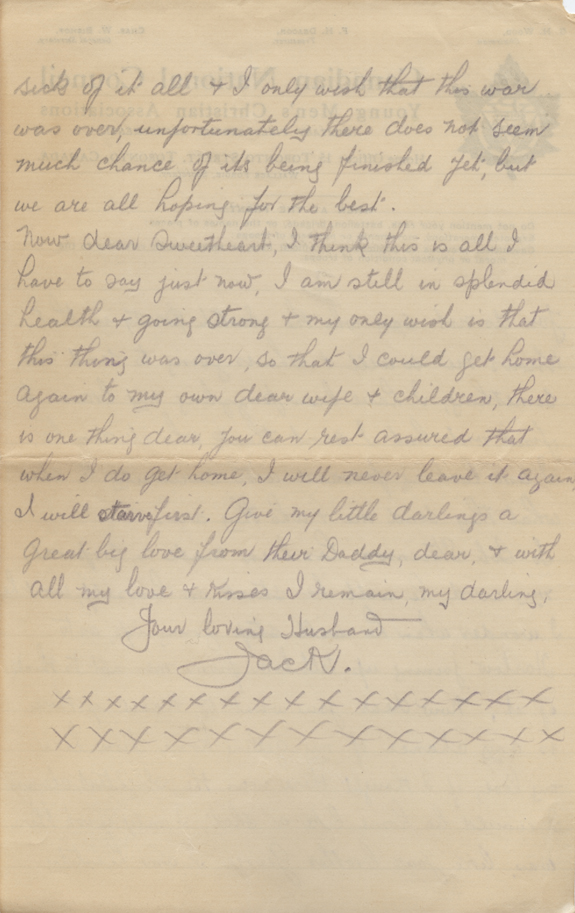 sick of it all + I only wish that this war
was over, unfortunately there does not seem
much chance of its being finished yet, but
we are all hoping for the best.
Now dear Sweetheart, I think this is all I
have to say just now, I am still in splendid
health + going strong + my only wish is that
this thing was over, so that I could get home
again to my own dear wife + children, there
is one thing dear, you can rest assured that
when I do get home, I will never leave it again,
I will starve first. Give my little darlings a
great big love from their Daddy, dear, + with
all my love + kisses I remain, my darling,
Your loving Husband
Jack.
x x x x x x x x x x x x x x x x x x
x x x x x x x x x x x x x x x